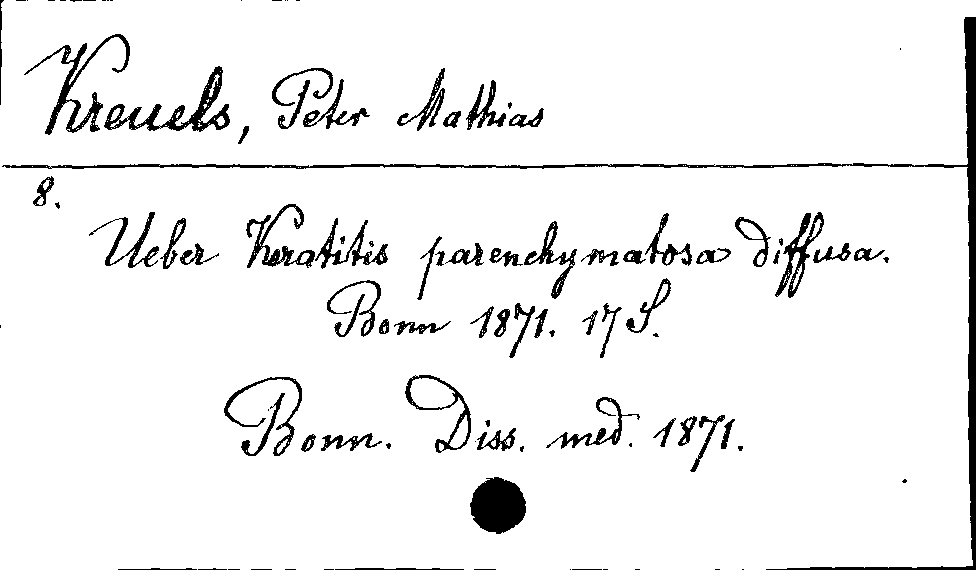 Kreuels, Peter Mathias
8.
Ueber Keratitis parenchymatosa diffusa.
Bonn 1871. 17 S.
Bonn. Diss. med. 1871.